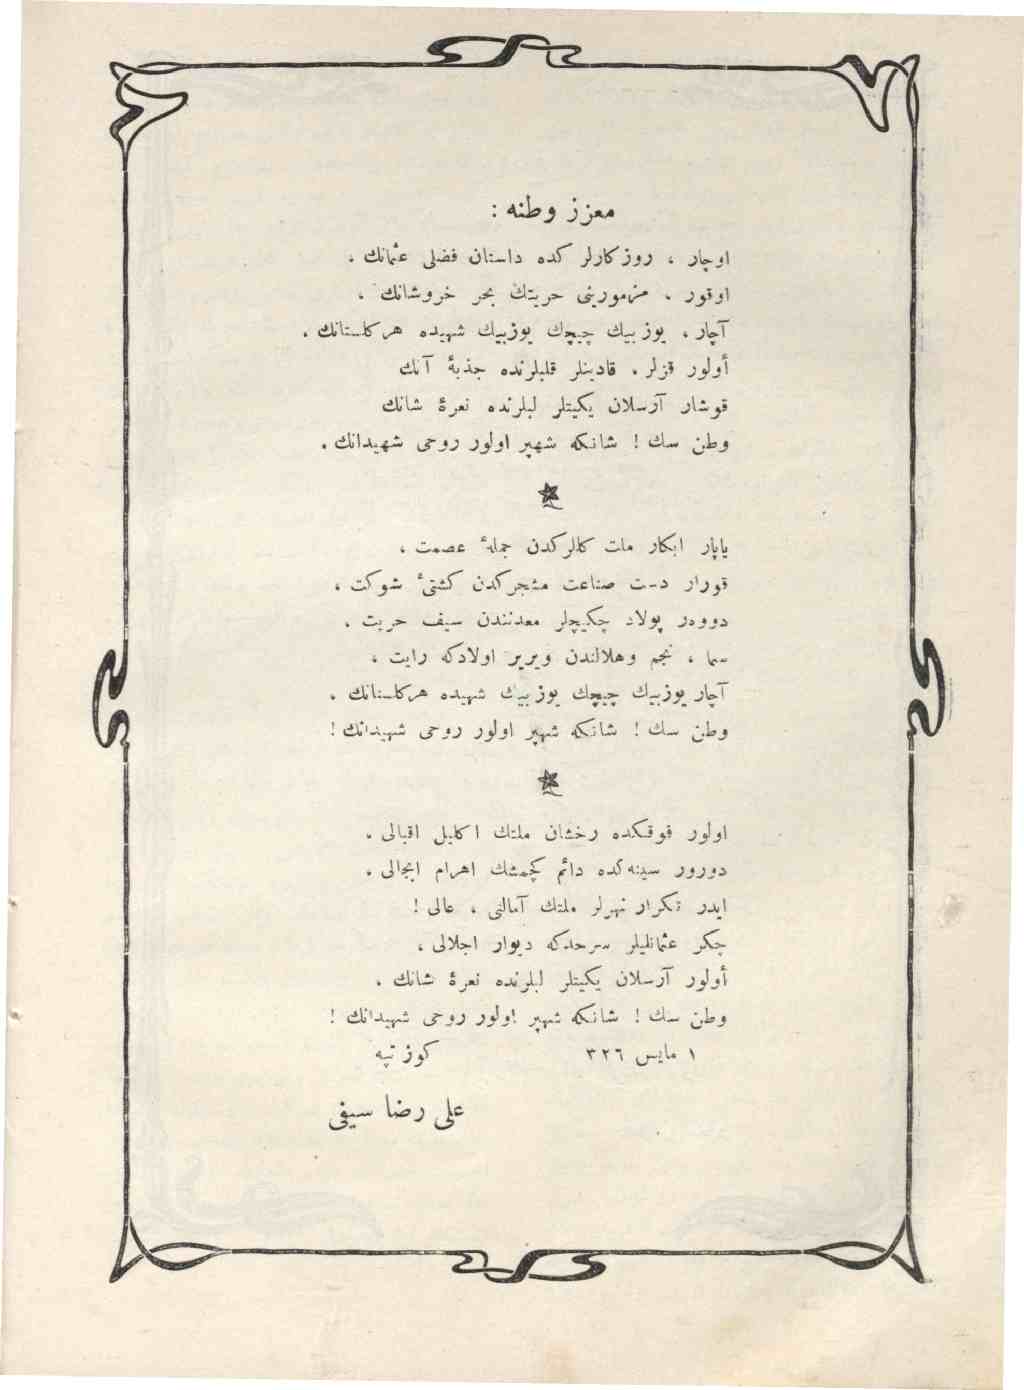 معزز وطنه :
اوچار ، روزكارلر كده داستان فضلی عثمانك ،
اوقور ، مزمورینی حریتك بحر خروشانك ،
آچار ، یوز بیك چیچك یوزبیك شهیده هر كلستانك ،
أولور قزلر ، قادینلر قلبلرنده جذبهٔ آنك
قوشار آرسلان یكیتلر لبلرنده نعرهٔ شانك
وطن سك ! شانكه شهپر اولور روحی شهیدانك .
یاپار ابكار ملت كللركدن جملهٔ عصمت ،
قورار دست صناعت مشجركدن كشتیٔ شوكت ،
دووهر پولاد چكیچلر معدنندن سیف حریت ،
سما ، نجم وهلالندن ویریر اولادكه رایت ،
آچار یوزبیك چیچك یوز بیك شهیده هر كلستانك ،
وطن سك ! شانكه شهپر اولور روحی شهیدانك !
اولور فوقكده رخشان ملتك اكلیل اقبالی ،
دورور سینه‌كده دائم كچمشك اهرام ابجالی ،
ایدر تكرار نهرلر ملتك آمالنی ، عالی !
چكر عثمانلیلر سرحدكه دیوار اجلالی ،
أولور آرسلان یكیتلر لبلرنده نعرهٔ شانك ،
وطن سك ! شانكه شهپر اولور روحی شهیدانك !
١ مایس ٣٢٦ كوز تپه
علی رضا سیفی